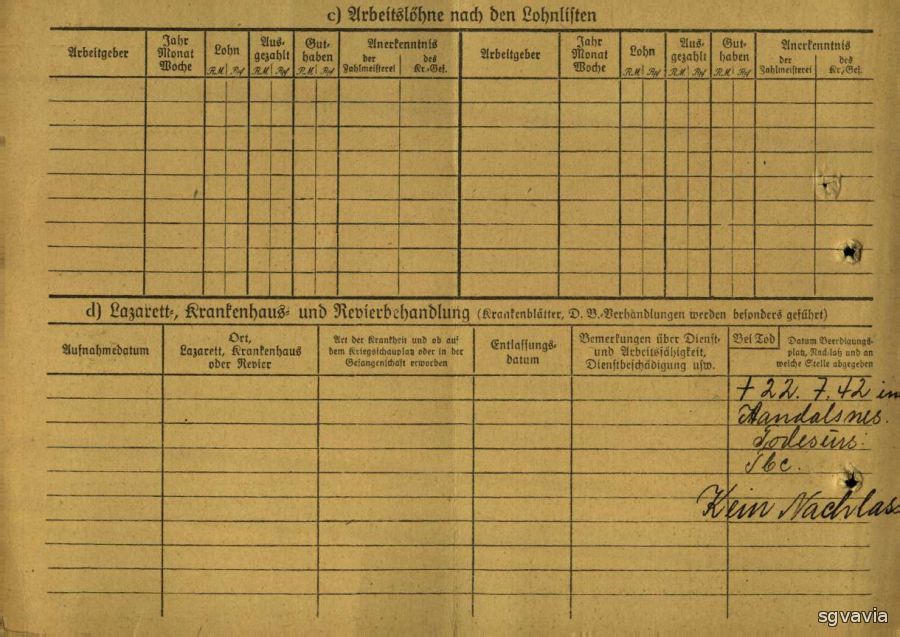 c) Arbeitslöhne nach den Lohnlisten
Arbeitgeber
Jahr
Monat
Woche
Lohn
RM Rpf
Aus-
gezahlt
RM Rpf
Gut-
haben
RM Rpf
Anerkenntnis
der
Zahlmeisterei
des
Kr.-Gef.
Arbeitgeber
Jahr
Monat
Woche
Lohn
RM Rpf
Aus-
gezahlt
RM Rpf
Gut-
haben
RM Rpf
Anerkenntnis
der
Zahlmeisterei
des
Kr.-Gef.
d) Lazarett-, Krankenhaus- und Revierbehandlung (Krankenblätter, D. B.-Verhandlungen werden besonders geführt)
Aufnahmedatum
Ort,
Lazarett, Krankenhaus
oder Revier
Art der Krankheit und ob auf
dem Kriegsschauplatz oder in der
Gefangenschaft erworben
Entlassungs-
datum
Bemerkungen über Dienst-
und Arbeitsfähigkeit,
Dienstbeschädigung usw.
Bei Tod
Datum Beerdigungs-
platz, Nachlaß und an
welche Stelle abgegeben
† 22. 7. 42 in
Aandalsnes.
Todesurs:
Tbc.
Kein Nachlas
sgvavia